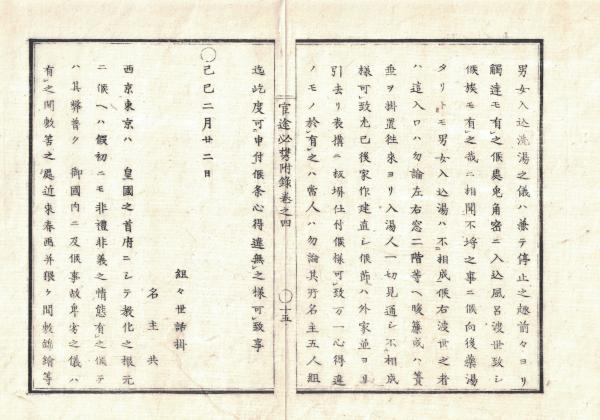 男女入込洗湯之儀ハ兼テ停止之趣前々ヨリ
觸達モ有之候處兎角密ニ入込風呂渡世致シ
候族モ有之哉ニ相聞不埒之事ニ候向後藥湯
タリトモ男女入込湯ハ不相成候右渡世之者
ハ這入口ハ勿論左右窓二階等ヘ暖簾或ハ簀
垂ヲ掛置往來ヨリ入湯人一切見通シ不相成
樣可致尤已後家作建直シ候節ハ外家並ヨリ
引去リ表構ニ板塀仕付候樣可致万一心得違
ノモノ於有之ハ當人ハ勿論其所名主五人組
官途必携附錄卷之四
〇十五
迄屹度可申付候条心得違無之樣可致事
組々世話掛
名主共
〇己巳二月廿二日
西京東京ハ 皇國之首府ニシテ教化之根元
ニ候ヘハ假初ニモ非禮非義之情態有之候テ
ハ其弊普ク 御國内ニ及候事故卑劣之儀ハ
有之間敷筈之處近來春画幷猥ケ間敷錦繪等